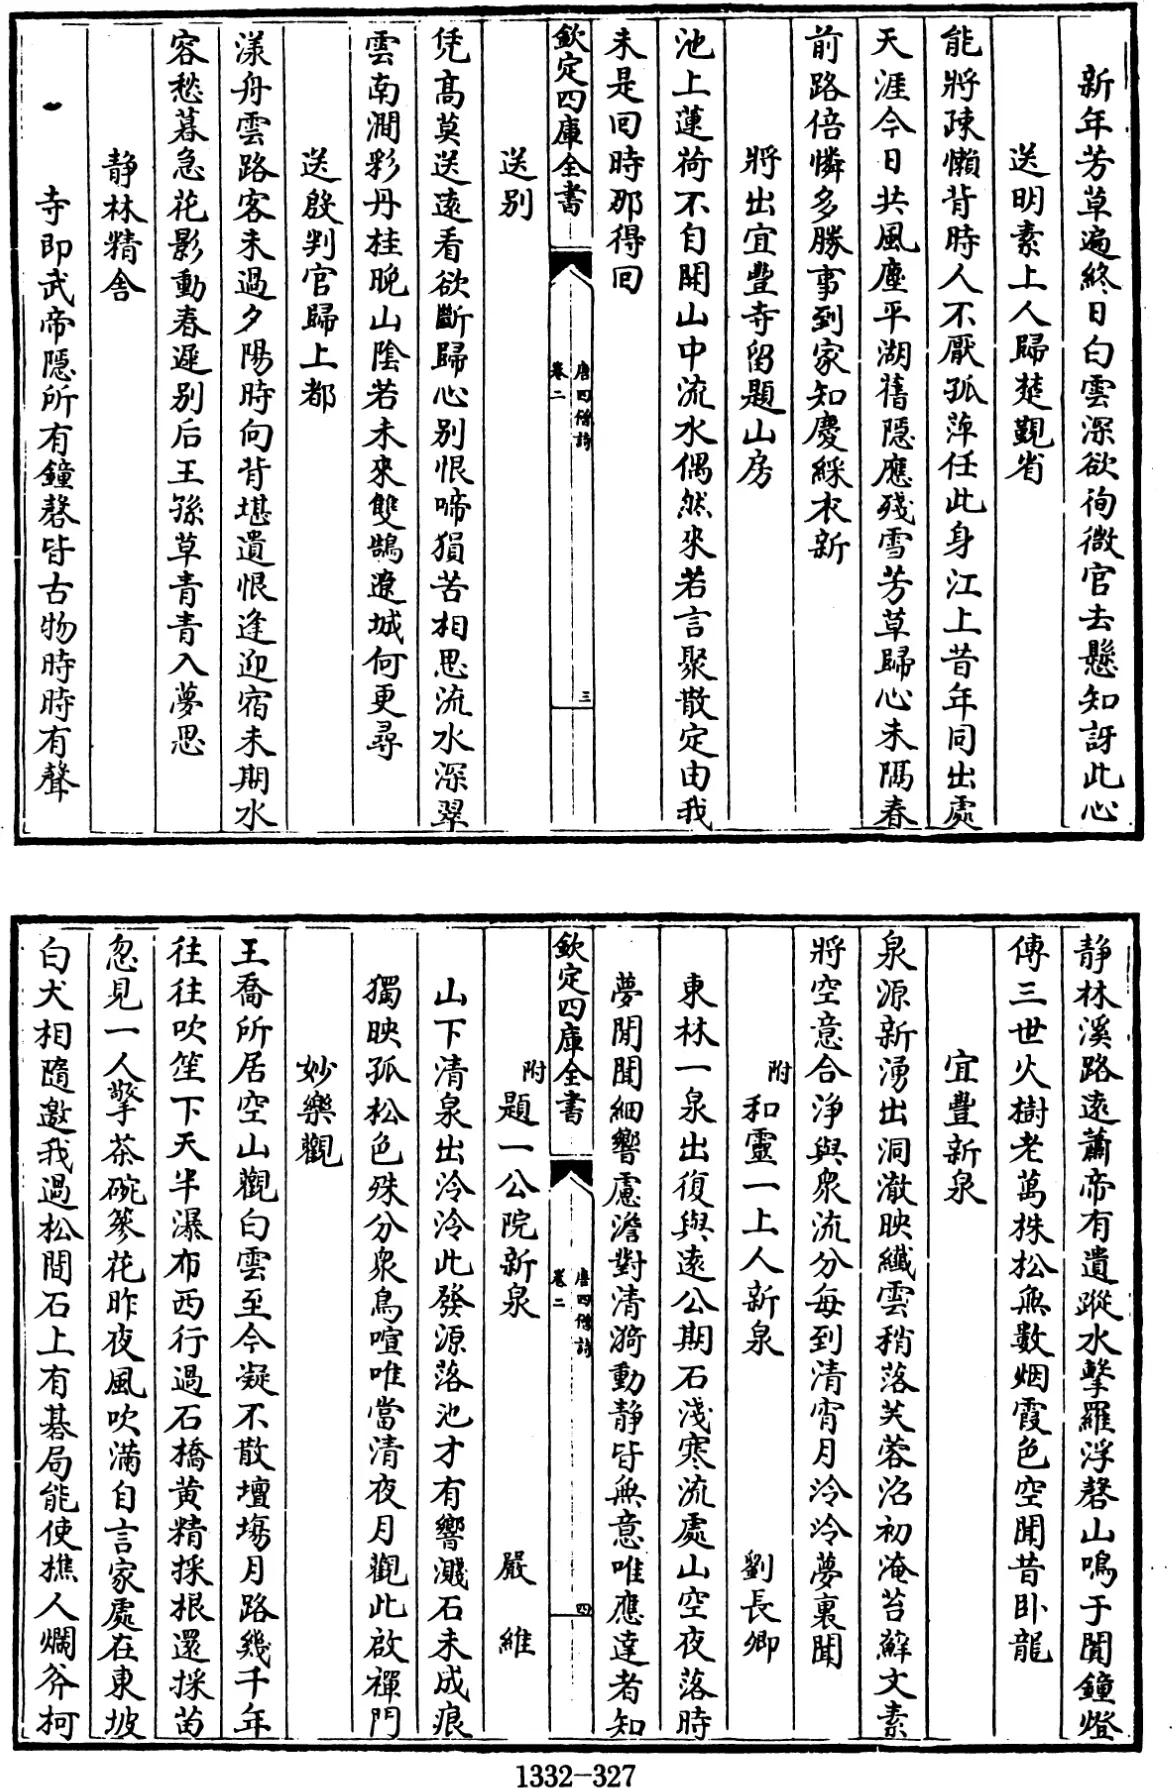 新年芳草遍終日白雲深欲徇微官去懸知訝此心
送明素上人歸楚覲省
能將疎懶背時人不厭孤萍任此身江上昔年同出處
天涯今日共風塵平湖舊隱應殘雪芳草歸心未隔春
前路倍憐多勝事到家知慶綵衣新
將出宜豐寺留題山房
池上蓮荷不自開山中流水偶然來若言聚散定由我
未是回時那得回
欽定四庫全書
唐四僧詩
卷二
三
送别
凭高莫送遠看欲斷歸心别恨啼猿苦相思流水深翠
雲南澗影丹桂晚山陰若未來雙鵠遼城何更尋
送殷判官歸上都
漾舟雲路客未過夕陽時向背堪遺恨逢迎宿未期水
容愁暮急花影動春遲别后王孫草青青入夢思
靜林精舍
寺即武帝隱所有鐘磬皆古物時時有聲
靜林溪路遠蕭帝有遺蹤水擊羅浮磬山鳴于闐鐘燈
傳三世火樹老萬株松無數烟霞色空聞昔卧龍
宜豐新泉
泉源新湧出洞澈映纖雲稍落芙蓉沼初淹苔蘚文素
將空意合淨與衆流分每到清宵月泠泠夢裏聞
附和靈一上人新泉 劉長卿
東林一泉出復與遠公期石淺寒流處山空夜落時
夢閒聞細響慮澹對清漪動靜皆無意唯應達者知
欽定四庫全書
唐四僧詩
卷二
四
附題一公院新泉 嚴維
山下清泉出泠泠此發源落池才有響濺石未成痕
獨映孤松色殊分衆鳥喧唯當清夜月觀此啟禪門
妙樂觀
王喬所居空山觀白雲至今凝不散壇塲月路幾千年
往往吹笙下天半瀑布西行過石橋黄精採根還採苗
忽見一人擎茶碗篸花昨夜風吹滿自言家處在東坡
白犬相隨邀我過松間石上有碁局能使樵人爛斧柯
1332-327